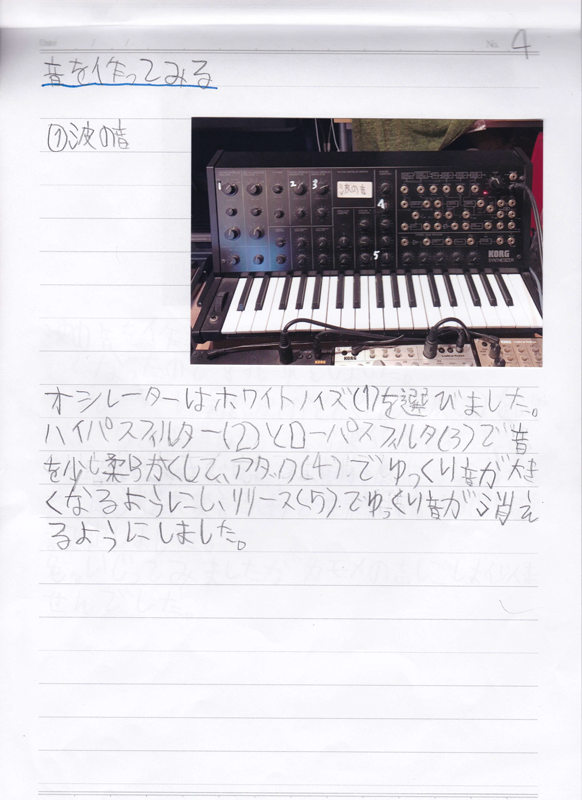 No. 4
音を作ってみる
①波の音
1
2
3
波の音
4
5
KORG
オシレーターはホワイトノイズ(1)を選びました。
ハイパスフィルター(2)とローパスフィルタ(3)で音
を少し柔らかくして、アタック(4)でゆっくり音が大き
くなるようにし、リリース(5)でゆっくり音が消え
るようにしました。